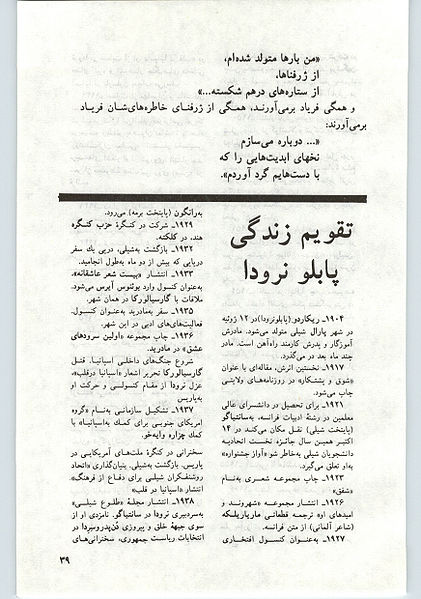 «من بارها متولد شده‌ام،
از ژرفناها،
از ستاره‌های درهم شکسته...»
و همگی فریاد برمی‌آورنـد، همگـی از ژرفنـای خاطره‌های‌شـان فریـاد
برمی‌آورند:
«... دوباره می‌سازم
نخهای ابدیت‌هایی را که
با دست‌هایم گرد آوردم».
تقویم زندگی
پابلو نرودا
۱۹۰۴ـ ریکاردو (پابلونرودا) در ۱۲ ژوئیه
در شهر پارال شیلی متولد می‌شود. مادرش
آموزگار و پدرش کارمند راه‌آهن است. مادر
چند ماه بعد در می‌گذرد.
۱۹۱۷ـ نخستین اثرش، مقاله‌ای با عنوان
«شوق و پشتکار» در روزنامه‌های ولایتی
چاپ می‌شود.
۱۹۲۱ـ برای تحصیل در دانشسرای عالی
معلمین در رشتهٔ ادبیات فرانسه، به‌سانتیاگو
(پایتخت شیلی) نقل مکان می‌کند در ۱۴
اکتبر همین سال جائزه نخست اتحادیه
دانشجویان شیلی به‌خاطر شو «آواز جشنواره»
به‌او تعلق می‌گیرد.
۱۹۲۳ـ چاپ مجموعه شعری به‌نـام
«شفق»
۱۹۲۶ـ انتشـار مجموعـه «شهرونـد و
امیدهای او» ترجمه قطعاتی ماریاریلـکه
(شاعر آلمانی) از متن فرانسه.
۱۹۲۷ـ به‌عنـوان کنسـول افتخـاری
به‌رانگون (پایتخت برمه) می‌رود.
۱۹۲۹ـ شرکت در کنگرهٔ حزب کنگره
هند، در کلکته.
۱۹۳۲ـ بازگشت به‌شیلی، درپی یك سفر
دریایی که بیش از دو ماه به‌طول انجامید.
۱۹۳۳ـ انتشـار «بیست شعر عاشقانه».
به‌عنوان کنسول وارد بوئنوس آیرس می‌شود.
ملاقات با گارسیالورکا در همان شهر.
۱۹۳۵ـ سفر به‌مادرید به‌عنوان کنسول.
فعالیت‌های‌های ادبی در این شهر.
۱۹۳۶ـ چاپ مجموعه «اولین سرودهای
عشق» در مادرید.
شروع جنگ‌های داخلـی اسپانیـا. قتـل
گارسیالورکا تحریر اشعار «اسپانیا درقلب»،
عزل نرودا از مقـام کنسولـی و حرکت او
به‌پاریس
۱۹۳۷ـ تشکیل سازمانـی به‌نـام «گروه
امریکای جنوبی برای کمك به‌اسپانیـا» با
کمك چزاره وایه‌خو.
سخنرانی در کنگرهٔ ملت‌های آمریکایی در
پاریس. بازگشت به‌شیلی. بنیان‌گذاری «اتحاد
روشنفکران شیلی برای دفاع از فرهنگ».
انتشار «اسپانیا در قلب»
۱۹۳۸ـ انتشـار مجلهٔ «طلـوع شیلـی»
به‌سردبیری نرودا در سانتیاگو. نامزدی او از
سوی جبههٔ خلق و پیروزی دُن‌پدروسِردا در
انتخابات ریاست جمهوری، سخنرانی‌های
۳۹